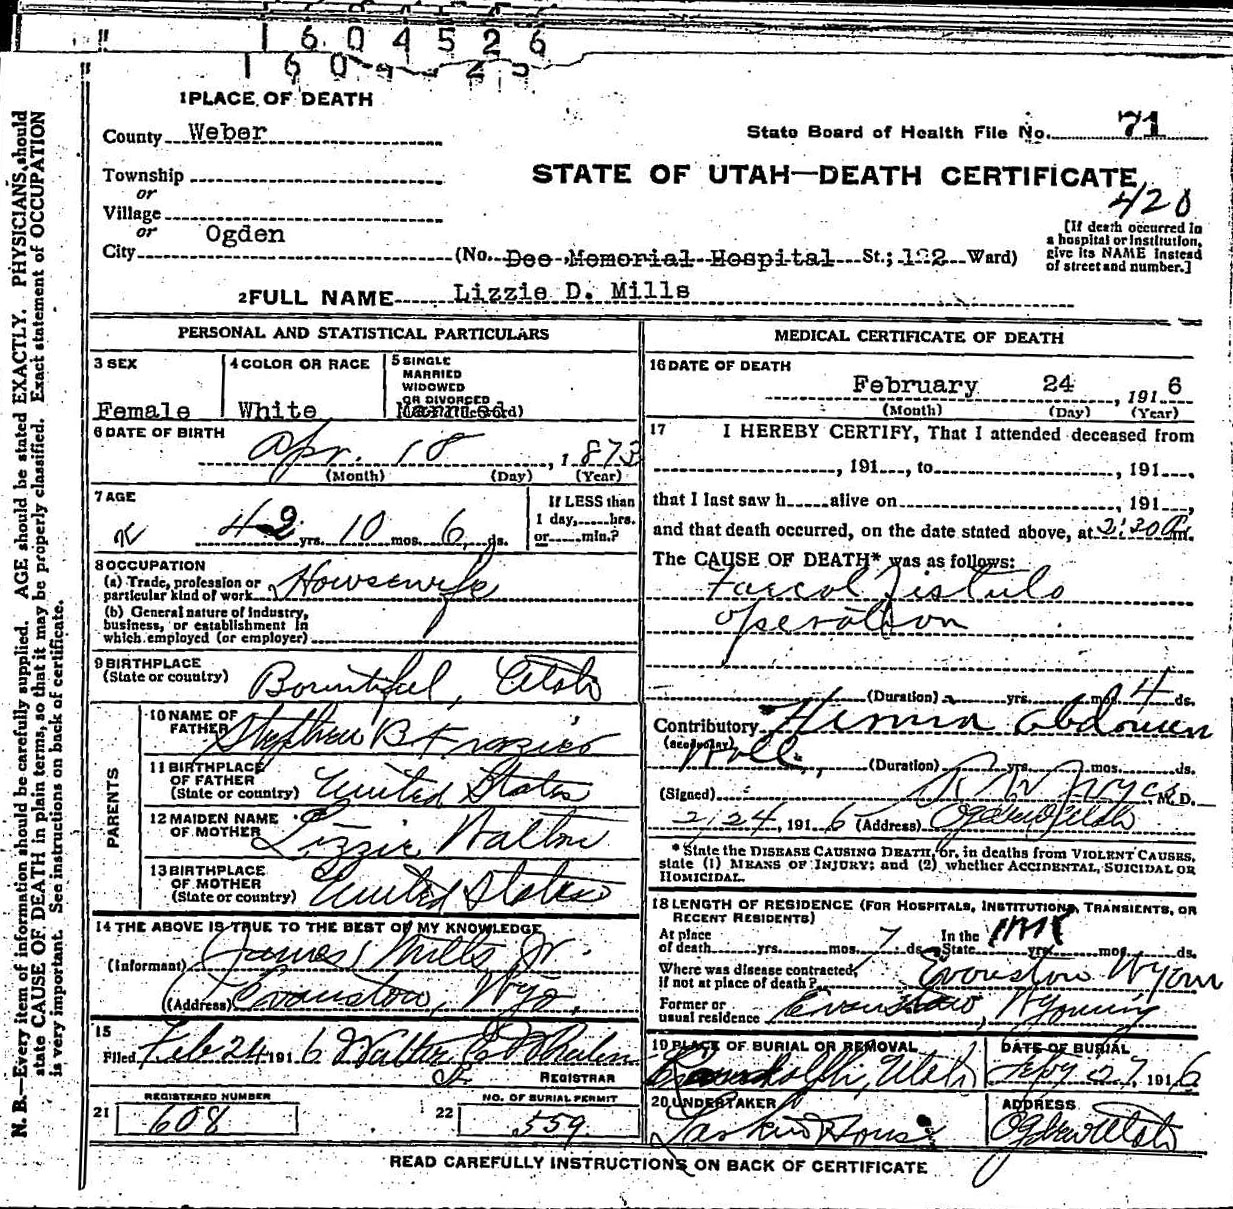 1604526
1PLACE OF DEATH
County Weber
State Board of Health File No. 71
Township
or
Village
or
City Ogden
STATE OF UTAH—DEATH CERTIFICATE
420
(No. Dee Memorial Hospital St.; 122 Ward)
[If death occurred in
a hospital or institution,
give its NAME instead
of street and number.]
2FULL NAME Lizzie D. Mills
PERSONAL AND STATISTICAL PARTICULARS
3 SEX
Female
4 COLOR OR RACE
White
5 SINGLE
MARRIED
WIDOWED
OR DIVORCED
Married
6 DATE OF BIRTH
Apr. 18, 1873
(Month) (Day) (Year)
7 AGE
42 yrs. 10 mos. 6 ds.
If LESS than
1 day, hrs.
or min.?
8 OCCUPATION
(a) Trade, profession or
particular kind of work Housewife
(b) General nature of industry,
business, or establishment in
which employed (or employer)
9 BIRTHPLACE
(State or country) Bountiful, Utah
PARENTS
10 NAME OF
FATHER Stephen B Frazier
11 BIRTHPLACE
OF FATHER
(State or country) United States
12 MAIDEN NAME
OF MOTHER Lizzie Walton
13 BIRTHPLACE
OF MOTHER
(State or country) United States
14 THE ABOVE IS TRUE TO THE BEST OF MY KNOWLEDGE
(Informant) James Mills Jr.
(Address) Evanston, Wyo.
15
Filed Feb 24 1916 Walter E Whalen
REGISTRAR
21
REGISTERED NUMBER
608
22
NO. OF BURIAL PERMIT
559
MEDICAL CERTIFICATE OF DEATH
16 DATE OF DEATH
February 24, 1916
(Month) (Day) (Year)
17 I HEREBY CERTIFY, That I attended deceased from
, 191 , to , 191 ,
that I last saw h alive on , 191 ,
and that death occurred, on the date stated above, at 2:20 P m.
The CAUSE OF DEATH* was as follows:
Faecal Fistula
operation
(Duration) yrs. mos. 4 ds.
Contributory Hernia abdomen
(Secondary) Wall
(Duration) yrs. mos. ds.
(Signed) M. D.
2/24, 1916 (Address) Ogden Utah
*State the DISEASE CAUSING DEATH, or, in deaths from VIOLENT CAUSES,
state (1) MEANS OF INJURY; and (2) whether ACCIDENTAL, SUICIDAL OR
HOMICIDAL.
18 LENGTH OF RESIDENCE (FOR HOSPITALS, INSTITUTIONS, TRANSIENTS, OR
RECENT RESIDENTS)
At place
of death yrs. mos. 7 ds. In the State yrs. mos. ds.
Where was disease contracted,
if not at place of death? Evanston Wyom
Former or
usual residence Evanston, Wyoming
19 PLACE OF BURIAL OR REMOVAL
Randolph, Utah
DATE OF BURIAL
27, 1916
20 UNDERTAKER
Larkin & Sons
ADDRESS
Ogden Utah
READ CAREFULLY INSTRUCTIONS ON BACK OF CERTIFICATE
N. B.—Every item of information should be carefully supplied. AGE should be stated EXACTLY. PHYSICIANS should
state CAUSE OF DEATH in plain terms, so that it may be properly classified. Exact statement of OCCUPATION
is very important. See instructions on back of certificate.